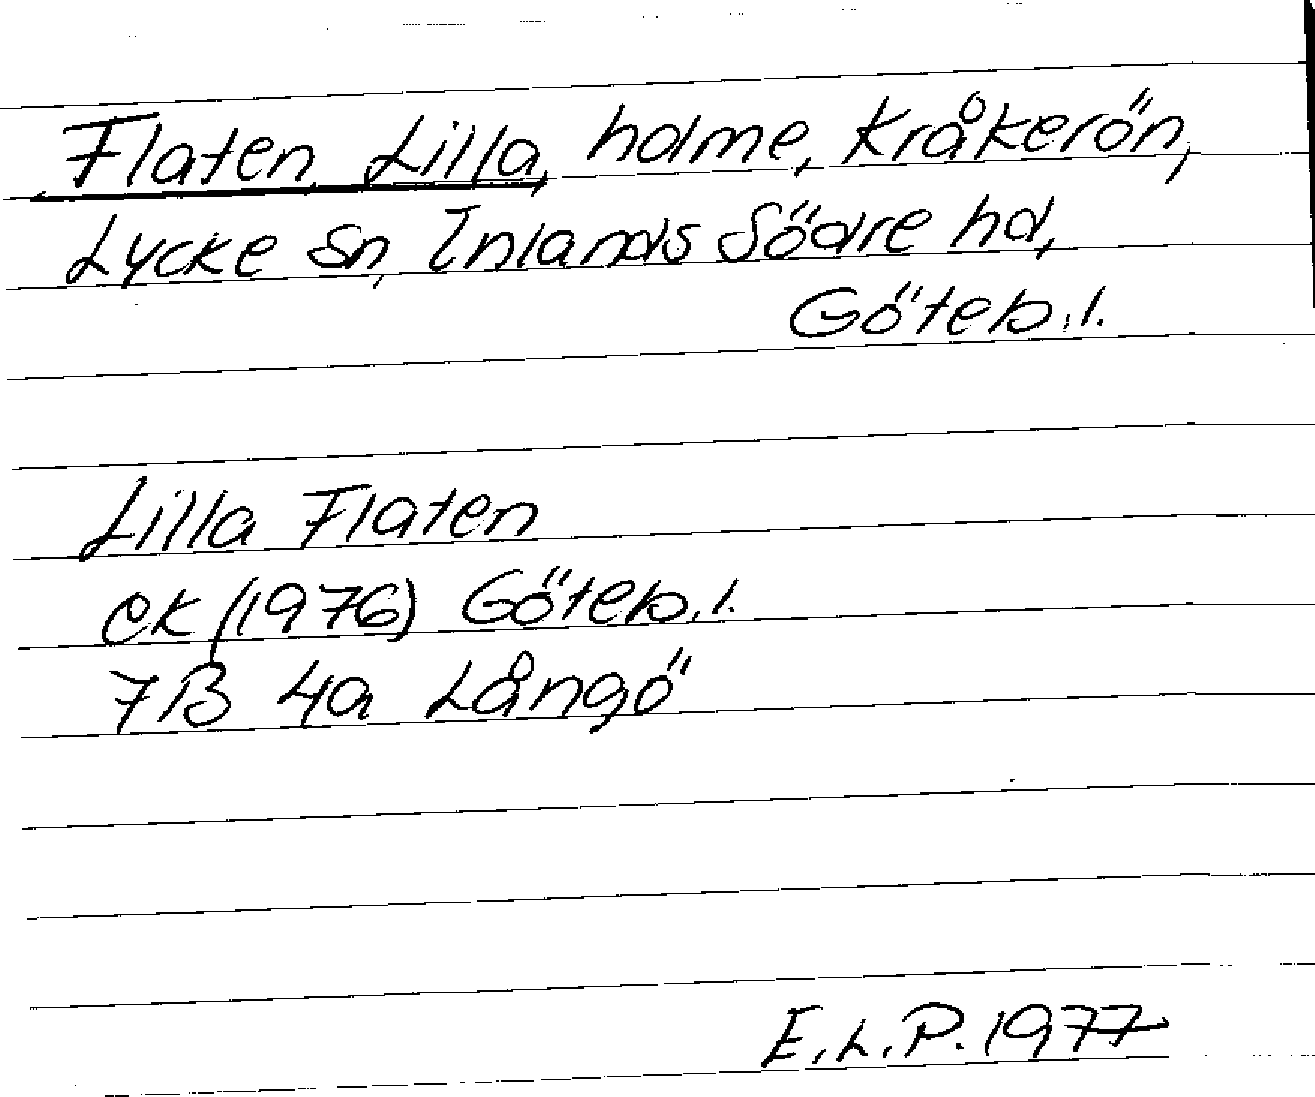 Flaten, Lilla, holme, Kråkerön,
Lycke sn, Inlands Södre hd,
Göteb. l.
Lilla Flaten
ek (1976) Göteb. l.
7B 4a Långö
E.L.P. 1977